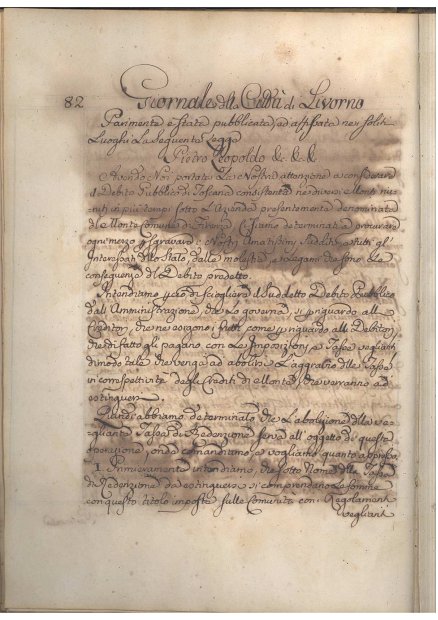 82 Giornale della Città di Livorno
Parimente è stata pubblicata, ed affissata nei soliti
Luoghi La Sequente Legge
Pietro Leopoldo &c &c &c
Avendo Noi portata La Nostra attenzione a considerare
il Debito Pubblico di Toscana consistente nei diversi Monti riu-
niti in più tempi sotto L'Azienda presentemente denominata
del Monte Comune di Firenze Ci siamo determinati a procurare
ogni mezzo di sgravare i Nostri Amatissimi Sudditi, e tutti gl'
Interessati dello Stato, dalle molestie, e Legami che sono La
conseguenza del Debito predetto.
Intendiamo di sciogliere il Suddetto Debito Pubblico
dall'Amministrazione che Lo governa, sì riguardo alli
che ne esigono i frutti come riguardo alli Debitori
che di fatto gli pagano, con Le Imposizioni, e Tasse veglianti
di modo tale che venga ad abolirsi L'aggravio delle Tasse
in correspettività degli Crediti di Monte, che verranno ad
estinguersi.
Quindi abbiamo determinato, che L'abolizione della ve-
gliante Tassa di Redenzione serva all'oggetto di questa
operazione, onde comandiamo, e vogliamo quanto appresso.
I. Primieramente intendiamo, che sotto Nome della Tassa
di Redenzione da estinguersi si comprendano Le Somme
con questo titolo imposte sulle Comunità con Regolamenti
Veglianti